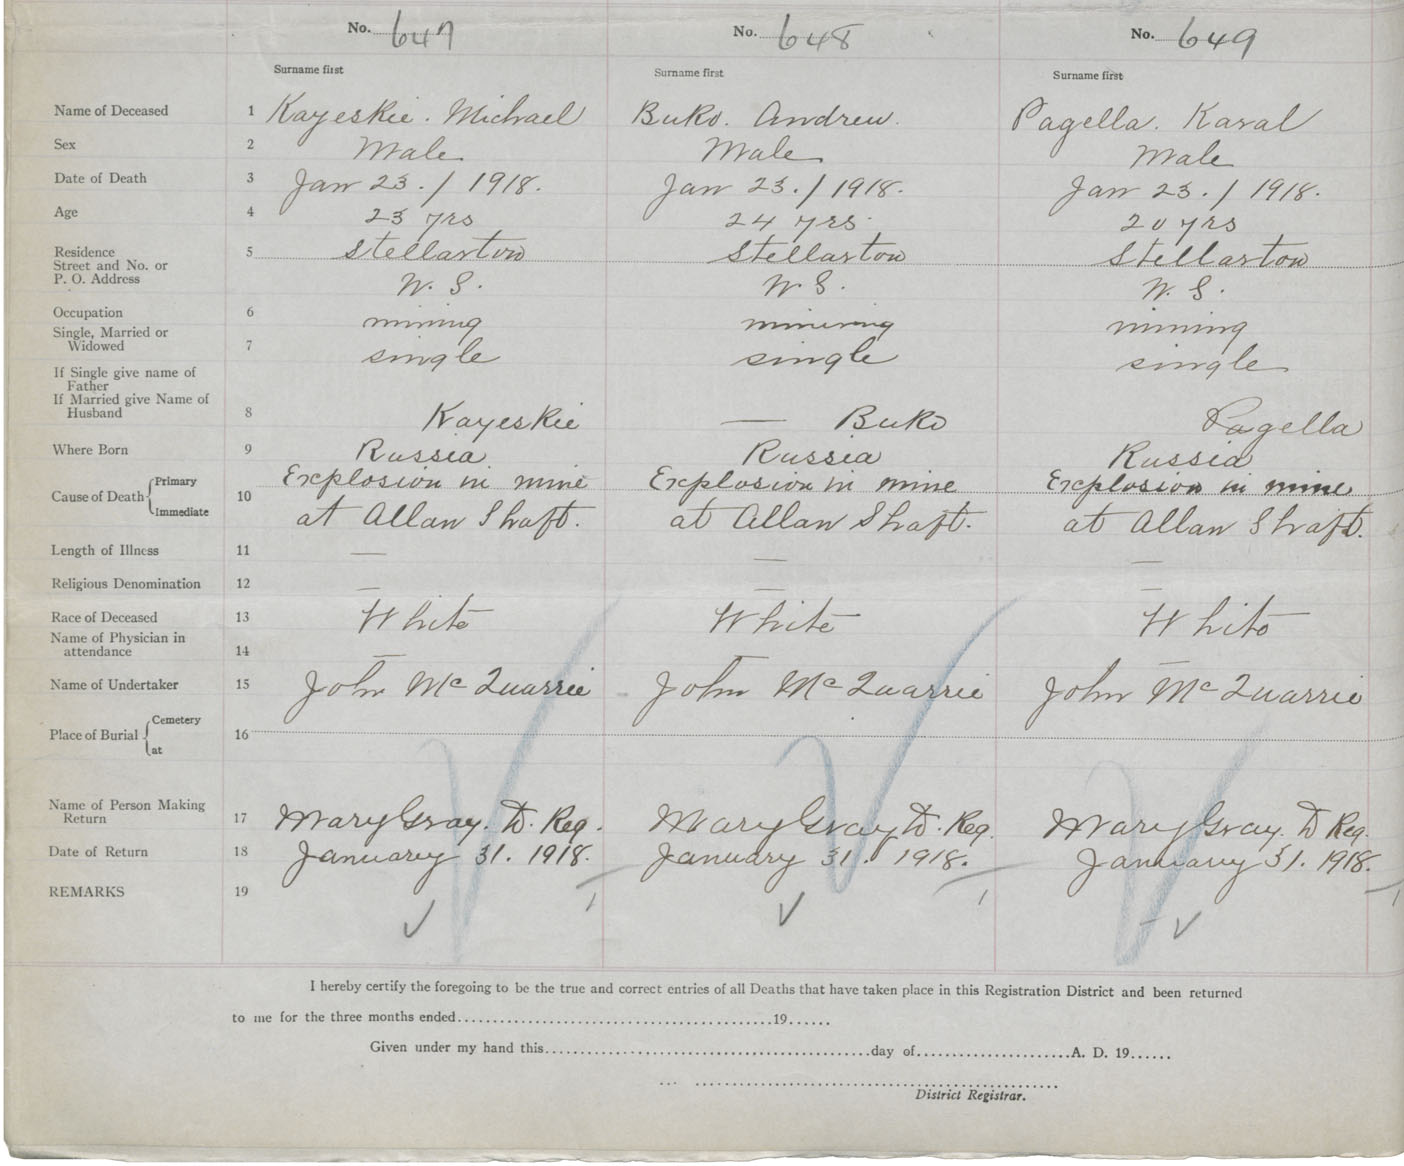 No. 647 No. 648 No. 649
Surname first Surname first Surname first
Name of Deceased 1 Kayeskie. Michael Buko. Andrew. Pagella. Karal
Sex 2 Male Male Male
Date of Death 3 Jan 23. / 1918. Jan 23. / 1918. Jan 23. / 1918.
Age 4 23 yrs 24 yrs. 20 yrs
Residence 5 Stellarton Stellarton Stellarton
Street and No. or
P. O. Address N. S. N S. N. S.
Occupation 6 mining minining mining
Single, Married or
Widowed 7 single single single
If Single give name of
Father
If Married give Name of
Husband 8 Kayeskie — Buko Pagella
Where Born 9 Russia Russia Russia
Cause of Death Primary Explosion in mine Explosion in mine Explosion in mine
Immediate 10 at Allan Shaft. at Allan Shaft. at Allan Shaft.
Length of Illness 11 — — —
Religious Denomination 12 — — —
Race of Deceased 13 White White White
Name of Physician in
attendance 14 — — —
Name of Undertaker 15 John McQuarrie John McQuarrie John McQuarrie
Place of Burial Cemetery 16
at
Name of Person Making
Return 17 Mary Gray. D. Reg. Mary Gray D. Reg. Mary Gray. D Reg.
Date of Return 18 January 31. 1918. January 31. 1918. January 31. 1918.
REMARKS 19
I hereby certify the foregoing to be the true and correct entries of all Deaths that have taken place in this Registration District and been returned
to me for the three months ended............19......
Given under my hand this............day of............A. D. 19......
District Registrar.